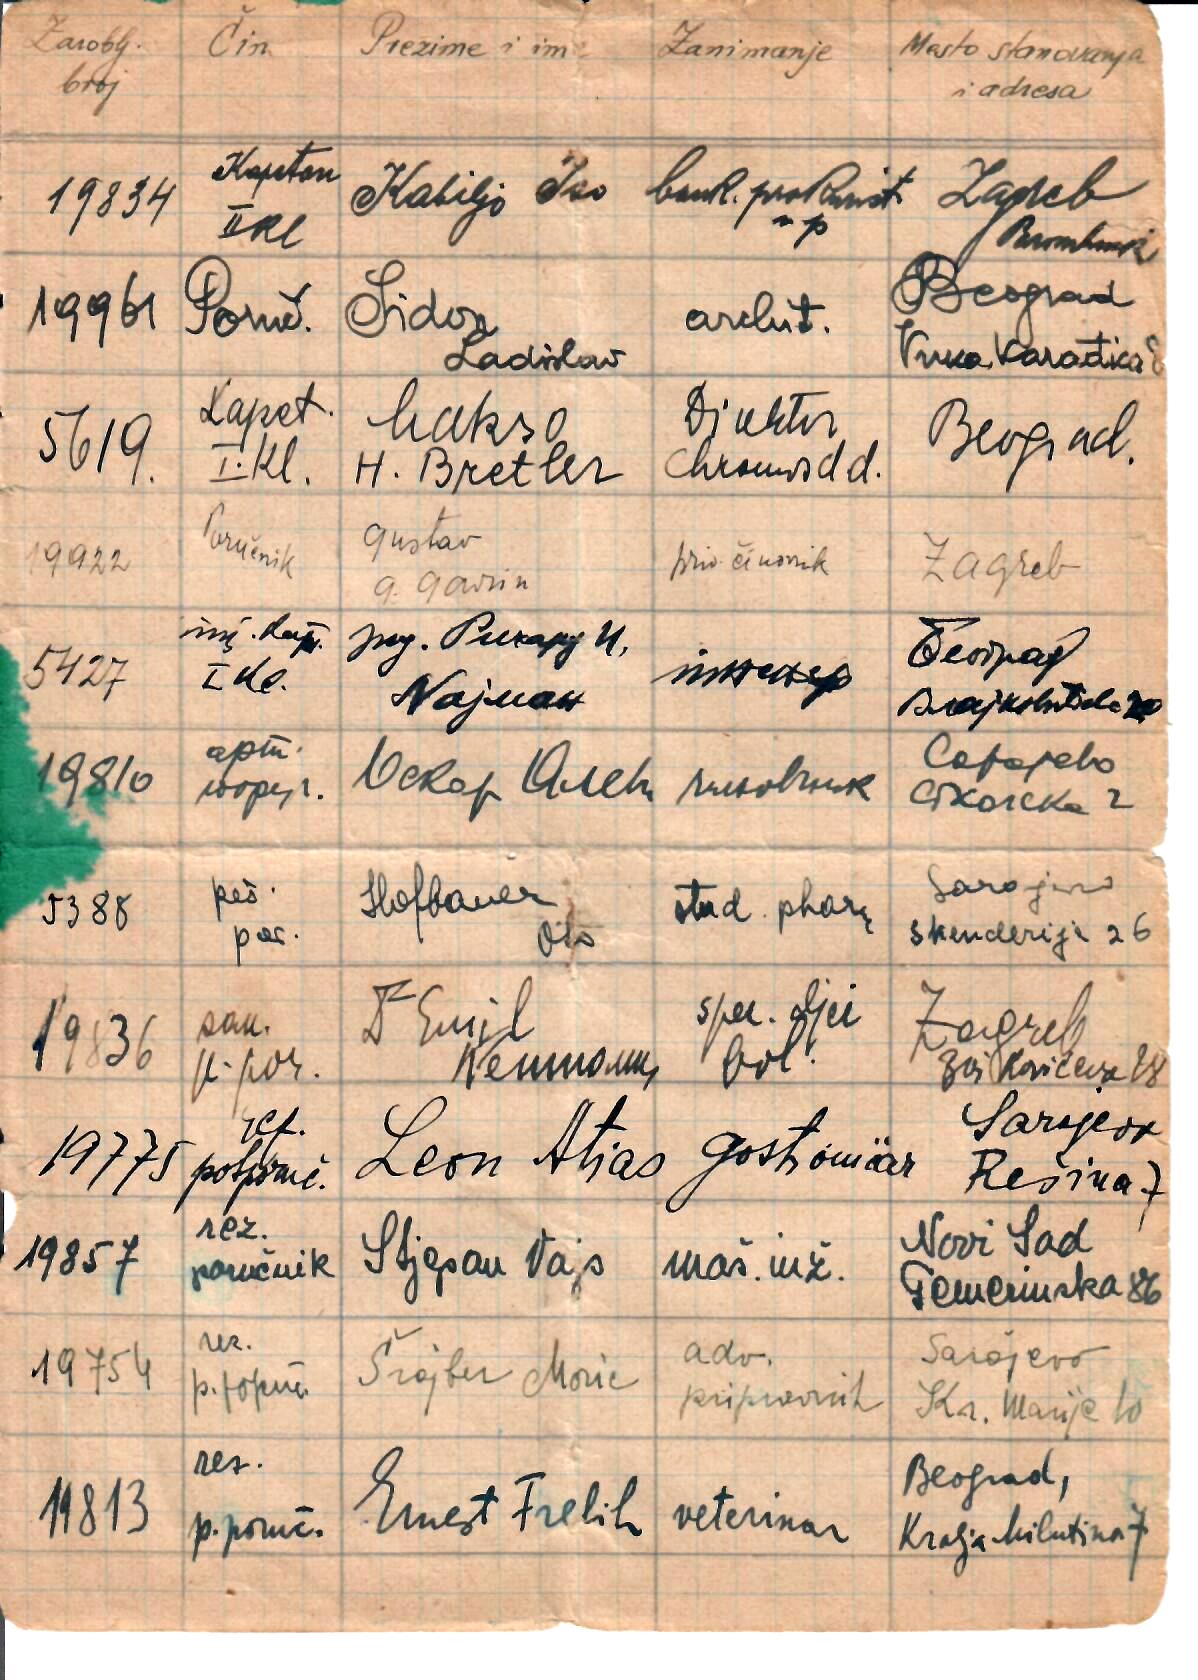 Zaroblj. broj Čin Prezime i ime Zanimanje Mesto stanovanja i adresa
19834 Kapetan II kl Kabiljo Iso bank. prokurist Zagreb
19961 Poruč. Šidon Ladislav arhit. Beograd Vuka Karadžića 8
5619. Kapet. I. Kl. Makso H. Bretler Beograd.
19922 Poručnik Gustav G. Gavrin priv. činovnik Zagreb
5427 inž. kap. I kl. инг. Рихард Најман инжењер Београд
19810 Оскар чиновник Сарајево 2
5388 peš. por. Hofbauer Oto stud. pharm Sarajevo Skenderija 26
19836 san. p. por. Dr Emil Neumann, spec. dječ bol. Zagreb
19775 rez. potporuč. Leon Atias gostioničar Sarajevo Rešina 7
19857 rez. poručnik Stjepan Vajs maš. inž. Novi Sad Temerinska 86
19754 rez. p. poruč. Šrajber Moric adv. pripravnik Sarajevo Kr. Marije 10
19813 rez. p. poruč. Ernest Frelih veterinar Beograd, Kralja Milutina 7